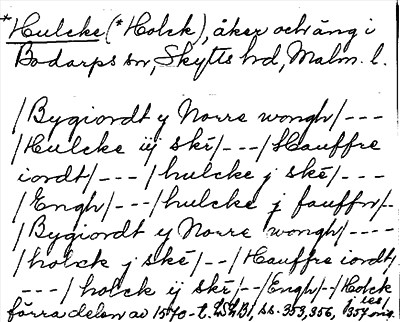 *Hulcke (*Holck), åker och äng i
Bodarps sn, Skytts hd, Malm. l.
/Bygiordt y Norre wongh/---
/Hulcke iij skē/---/Hauffre
iordt/---/hulcke j skē/---
/Engh/---/hulcke j fauffn/-
/Bygiordt y Norre wongh/----
/holck j skē/--/Hauffre iordt/
---/holck ij skē/--/Engh/--/Holck
förra delen av 1570-t. LSkB1, ss. 353, 356,